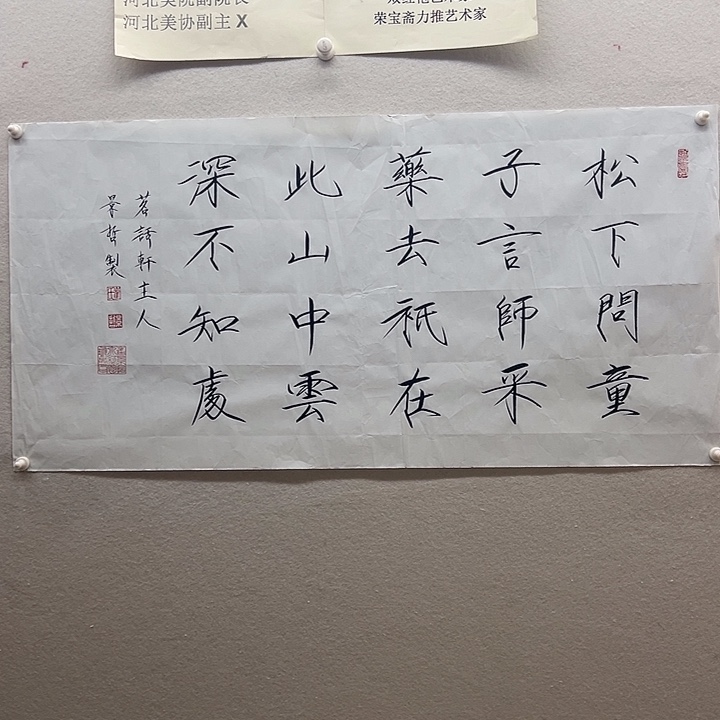 河北美院副院长
河北美协副主 X
荣宝斋力推艺术家
松下問童
子言師采
藥去祇在
此山中雲
深不知處
軒主人
景哲製